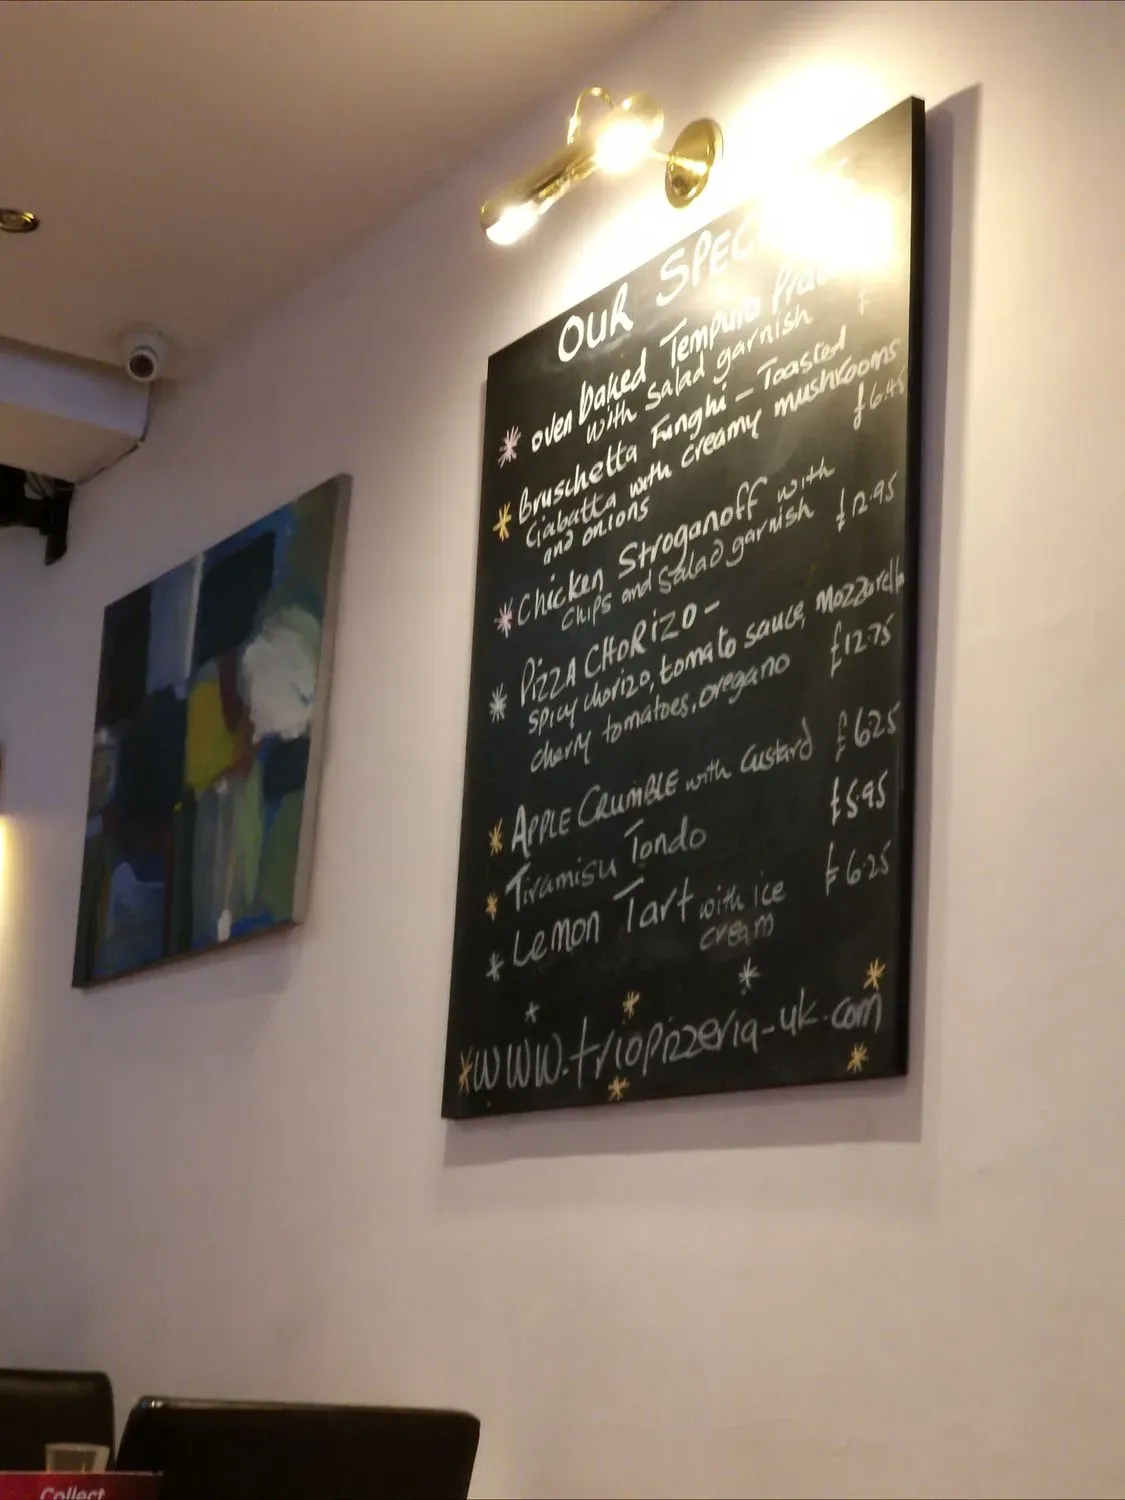 OUR
* oven baked Tempura
with salad garnish
£
* Bruschetta Funghi - Toasted
Ciabatta with creamy mushrooms
and onions
£6.45
* Chicken Stroganoff with
chips and salad garnish
£12.95
* PIZZA CHORIZO -
spicy chorizo, tomato sauce, Mozzarella
cherry tomatoes, oregano
£12.75
* APPLE CRUMBLE with Custard £6.25
* Tiramisu Tondo £5.95
* Lemon Tart with ice
cream
£6.25
*www.triopizzeria-uk.com
Collect